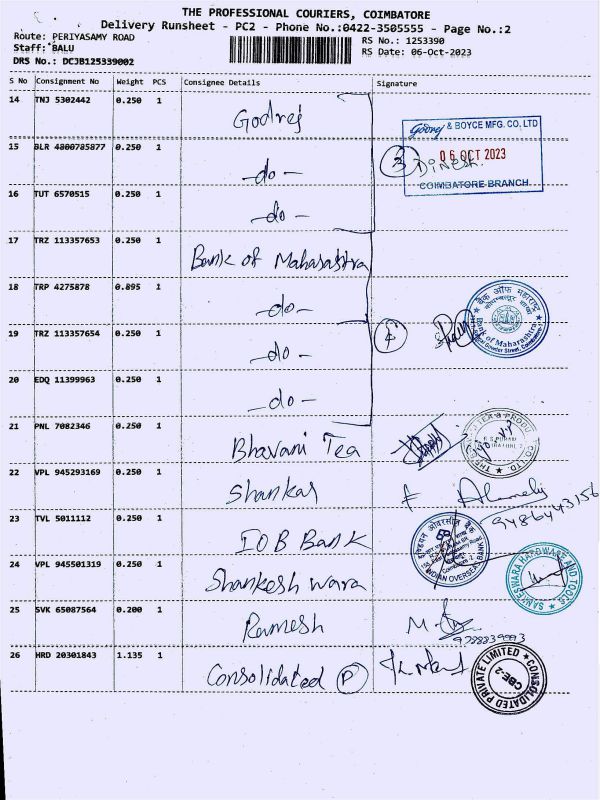 THE PROFESSIONAL COURIERS, COIMBATORE
Delivery Runsheet - PC2 - Phone No.:0422-3505555 - Page No.:2
Route: PERIYASAMY ROAD
Staff: BALU
DRS No.: DCJB125339002
RS No.: 1253390
RS Date: 06-Oct-2023
S No Consignment No Weight PCS Consignee Details Signature
14 TNJ 5302442 0.250 1 Godrej
Godrej & BOYCE MFG. CO. LTD
06 OCT 2023
DINESH.
COIMBATORE BRANCH
3
15 BLR 4800785877 0.250 1 -do-
16 TUT 6570515 0.250 1 -do-
17 TRZ 113357653 0.250 1 Bank of Maharashtra
18 TRP 4275878 0.895 1 -do-
बैंक ऑफ महाराष्ट्र
Bank of Maharashtra
19 TRZ 113357654 0.250 1 -do-
4
20 EDQ 11399963 0.250 1 -do-
21 PNL 7082346 0.250 1 Bhavani Tea
22 VPL 945293169 0.250 1 Shankar
9486443156
23 TVL 5011112 0.250 1 IOB Bank
INDIAN OVERSEAS BANK
24 VPL 945501319 0.250 1 Shankesh wara
HARDWARE AND TOOLS
25 SVK 65087564 0.200 1 Ramesh
9788839993
26 HRD 20301843 1.135 1 Consolidated P
CONSOLIDATED PRIVATE LIMITED
CBE-2